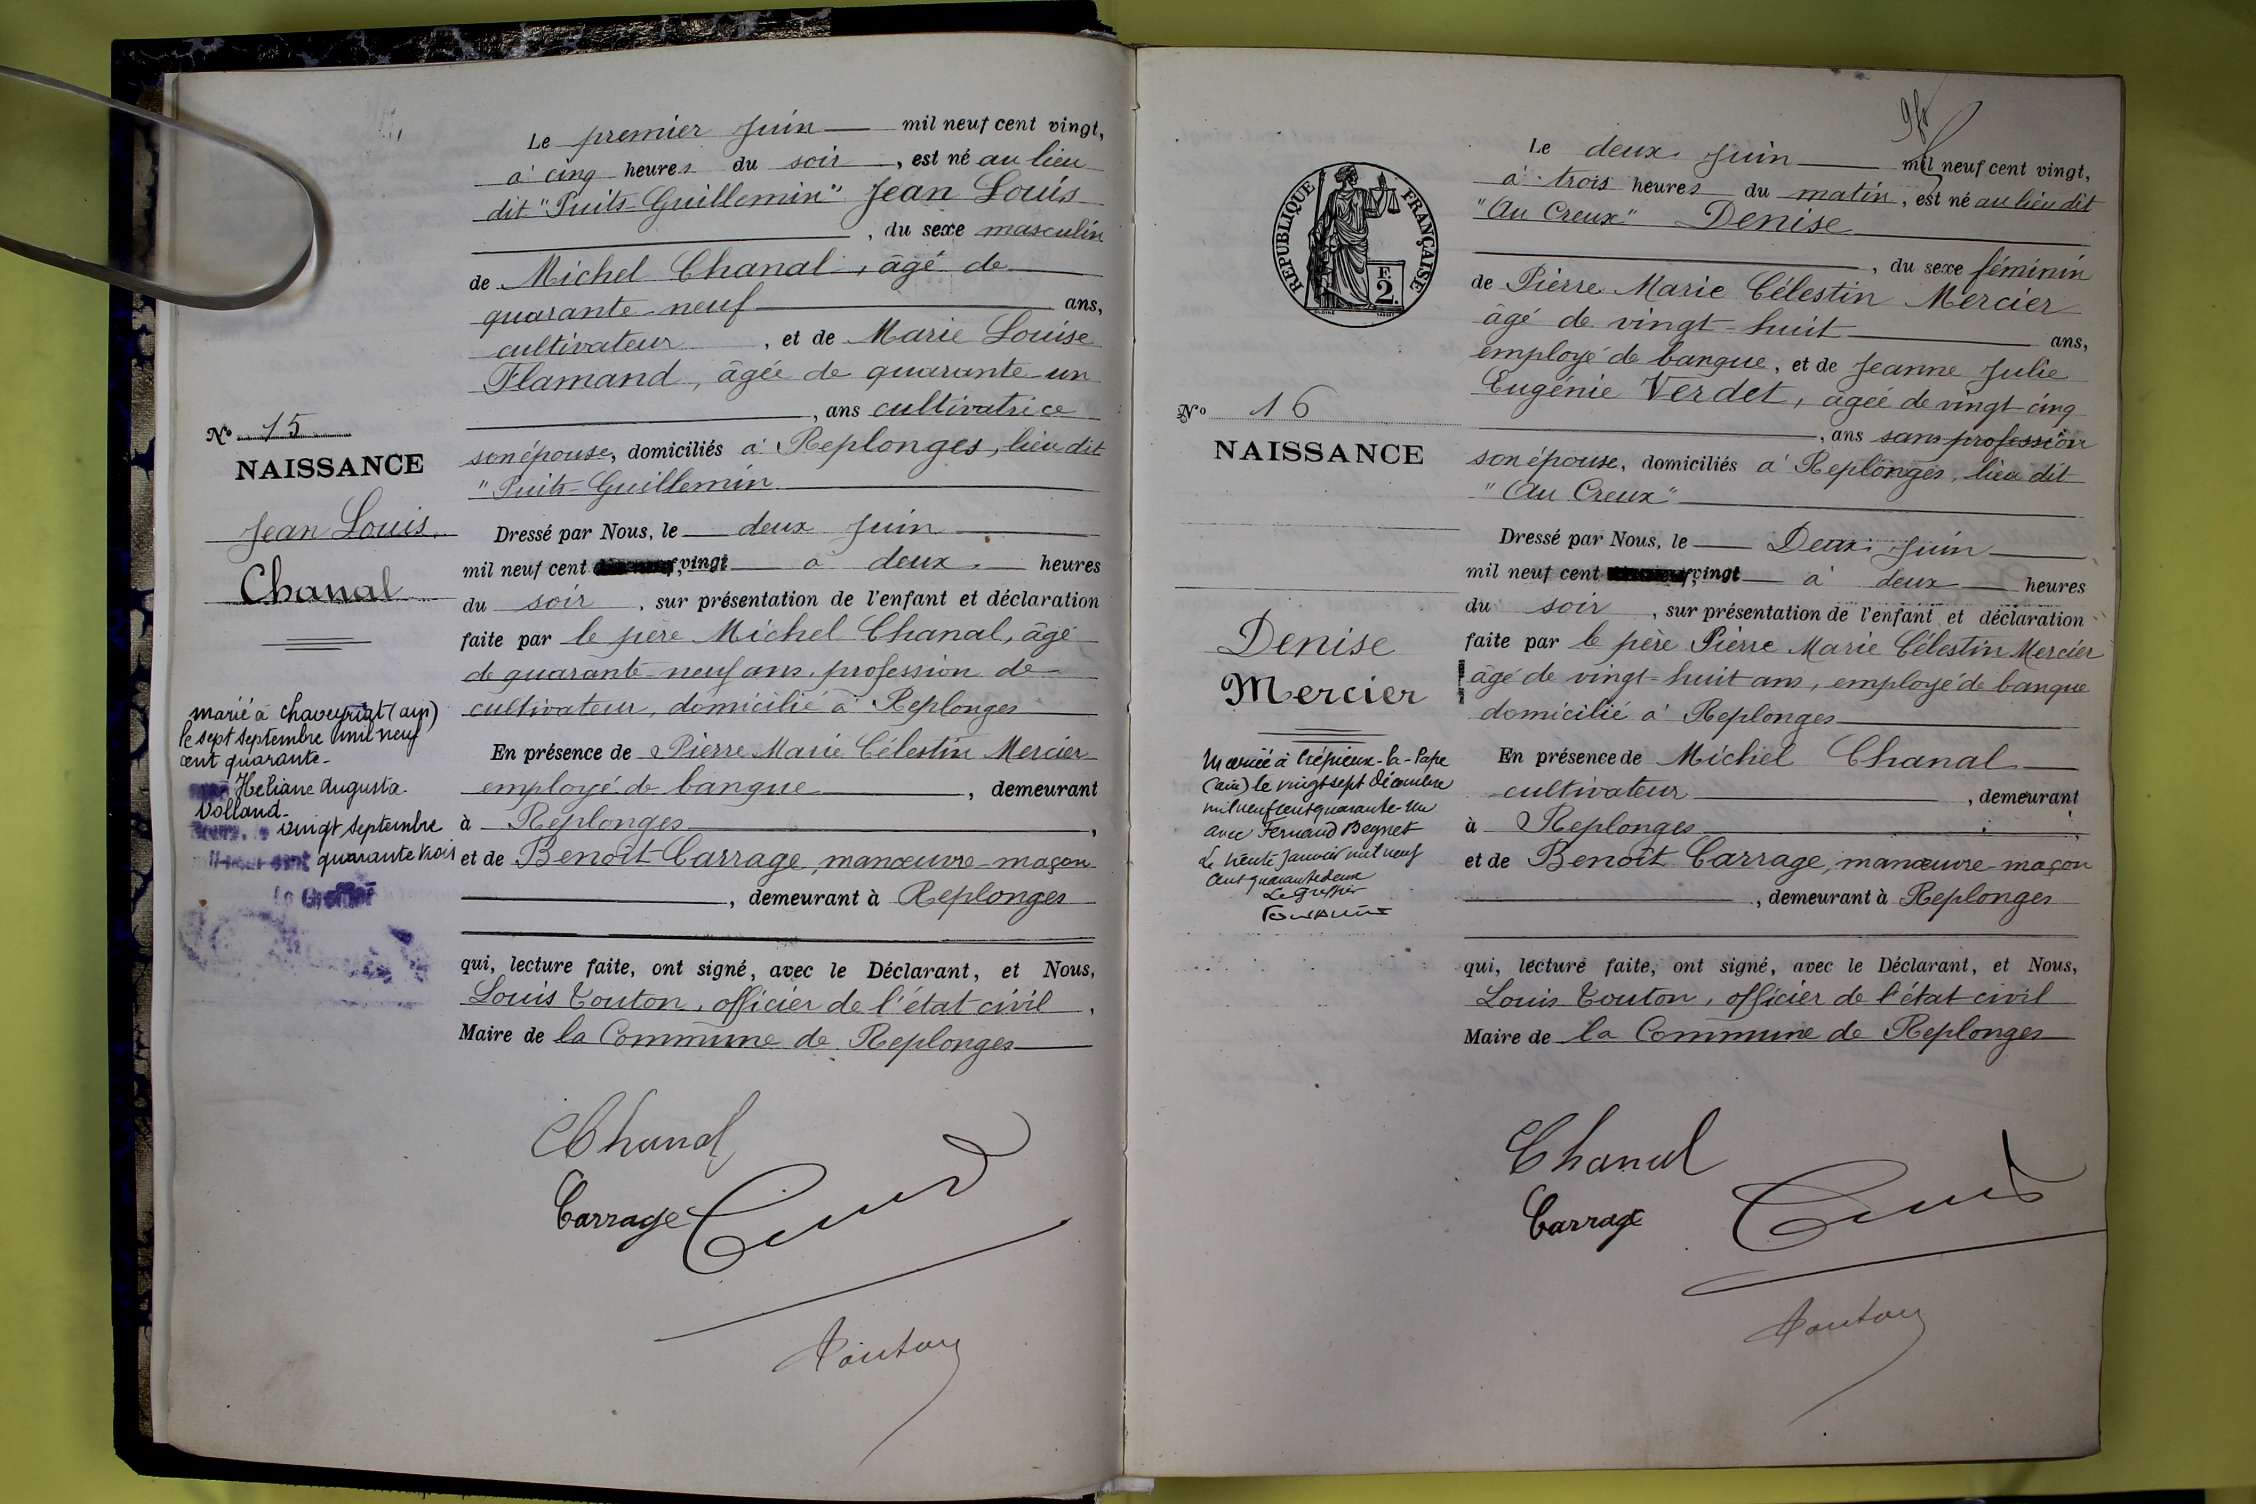 Le premier Juin mil neuf cent vingt,
à cinq heures du soir, est né au lieu
dit "Puits-Guillemin" Jean Louis
, du sexe masculin
de Michel Chanal, âgé de
quarante-neuf ans,
cultivateur, et de Marie Louise
Flamand, âgée de quarante-un
, ans cultivatrice
son épouse, domiciliés à Replonges, lieu dit
"Puits-Guillemin
Dressé par Nous, le deux Juin
mil neuf cent vingt à deux heures
du soir, sur présentation de l'enfant et déclaration
faite par le père Michel Chanal, âgé
de quarante-neuf ans, profession de
cultivateur, domicilié à Replonges
En présence de Pierre Marie Célestin Mercier
employé de banque, demeurant
à Replonges,
et de Benoît Carrage, manœuvre-maçon
, demeurant à Replonges
qui, lecture faite, ont signé, avec le Déclarant, et Nous,
Louis Touton, officier de l'état civil,
Maire de la Commune de Replonges
Chanal
Carrage
Touton
No 15
NAISSANCE
Jean Louis
Chanal
marié à Chaveyriat (ain)
le sept septembre mil neuf
cent quarante-
Heliane Augusta
Volland-
vingt septembre
quarante trois
Le Greffier
RÉPUBLIQUE FRANÇAISE
F.
2.
No 16
NAISSANCE
Denise
Mercier
Mariée à Crépieux-la-Pape
(ain) le vingt sept décembre
mil neuf cent quarante-un
avec Fernand Begnet
Le trente Janvier mil neuf
cent quarante deux
Le Greffier
Le deux Juin mil neuf cent vingt,
à trois heures du matin, est né au lieu dit
"Au Creux" Denise
, du sexe féminin
de Pierre Marie Célestin Mercier
âgé de vingt-huit ans,
employé de banque, et de Jeanne Julie
Eugénie Verdet, âgée de vingt-cinq
, ans sans profession
son épouse, domiciliés à Replonges, lieu dit
"Au Creux"
Dressé par Nous, le Deux Juin
mil neuf cent vingt à deux heures
du soir, sur présentation de l'enfant et déclaration
faite par le père Pierre Marie Célestin Mercier
âgé de vingt-huit ans, employé de banque
domicilié à Replonges
En présence de Michel Chanal
cultivateur, demeurant
à Replonges,
et de Benoît Carrage, manœuvre-maçon
, demeurant à Replonges
qui, lecture faite, ont signé, avec le Déclarant, et Nous,
Louis Touton, officier de l'état civil
Maire de la Commune de Replonges
Chanal
Carrage
Touton